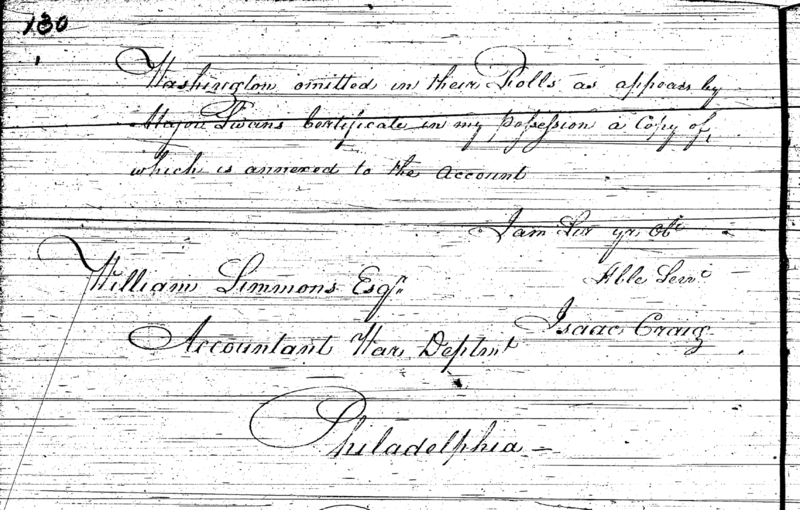 130
Washington omitted in their Rolls as appears by
Major Swans Certificate in my possession a Copy of
which is annexed to the account
I am Sir yr Obt
Hble Servt
William Simmons Esqr
Isaac Craig
Accountant War Deptmt
Philadelphia —